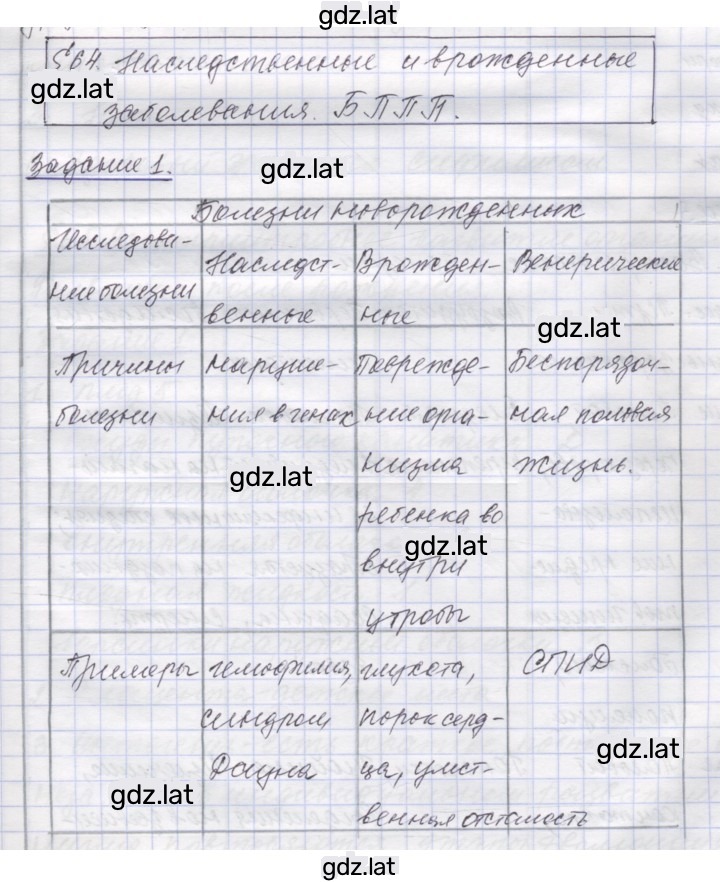 gdz.lat
§64. Наследственные и врожденные
gdz.lat
заболевания. БППП.
Задание 1.
gdz.lat
Болезни новорожденных
Исследова-
ние болезни
Наследст-
венные
Врожден-
ные
Венерические
gdz.lat
Причины
болезни
Наруше-
ния в генах
gdz.lat
Поврежде-
ние орга-
низма
ребенка во
внутри
утробы
gdz.lat
Беспорядоч-
ная половая
жизнь.
Примеры
гемофилия,
синдром
Дауна
gdz.lat
глухота,
порок серд-
ца, умст-
венная отсталость
СПИД
gdz.lat
gdz.lat